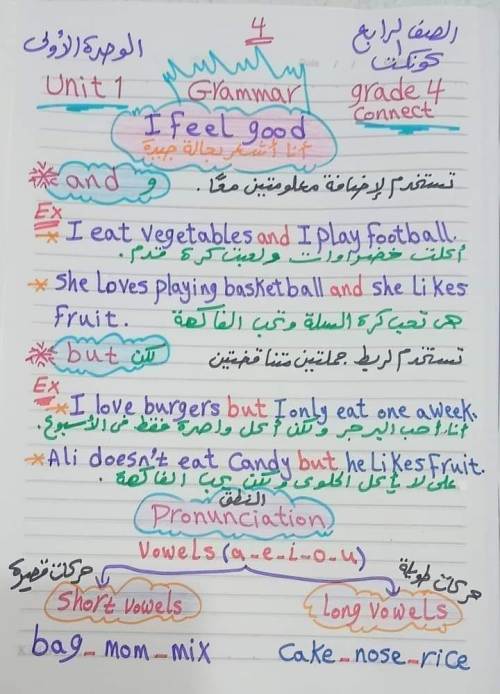 4
الصف الرابع
كونكت
الوحدة الأولى
Unit 1
Grammar
grade 4
Connect
I feel good
أنا أشعر بحالة جيدة
and و
تستخدم لإضافة معلومتين معًا.
Ex
I eat vegetables and I play football.
أكلت خضراوات ولعبت كرة قدم.
She loves playing basketball and she likes
fruit. هى تحب كرة السلة وتحب الفاكهة
but لكن
تستخدم لربط جملتين متناقضتين
Ex
I love burgers but I only eat one a week.
أنا أحب البرجر ولكن أكل واحدة فقط فى الأسبوع.
Ali doesn't eat Candy but he likes fruit.
على لا يأكل الحلوى ولكن يحب الفاكهة.
النطق
Pronunciation
Vowels (a-e-i-o-u)
حركات قصيرة
حركات طويلة
Short vowels
Long vowels
bag_mom_mix
Cake_nose_rice